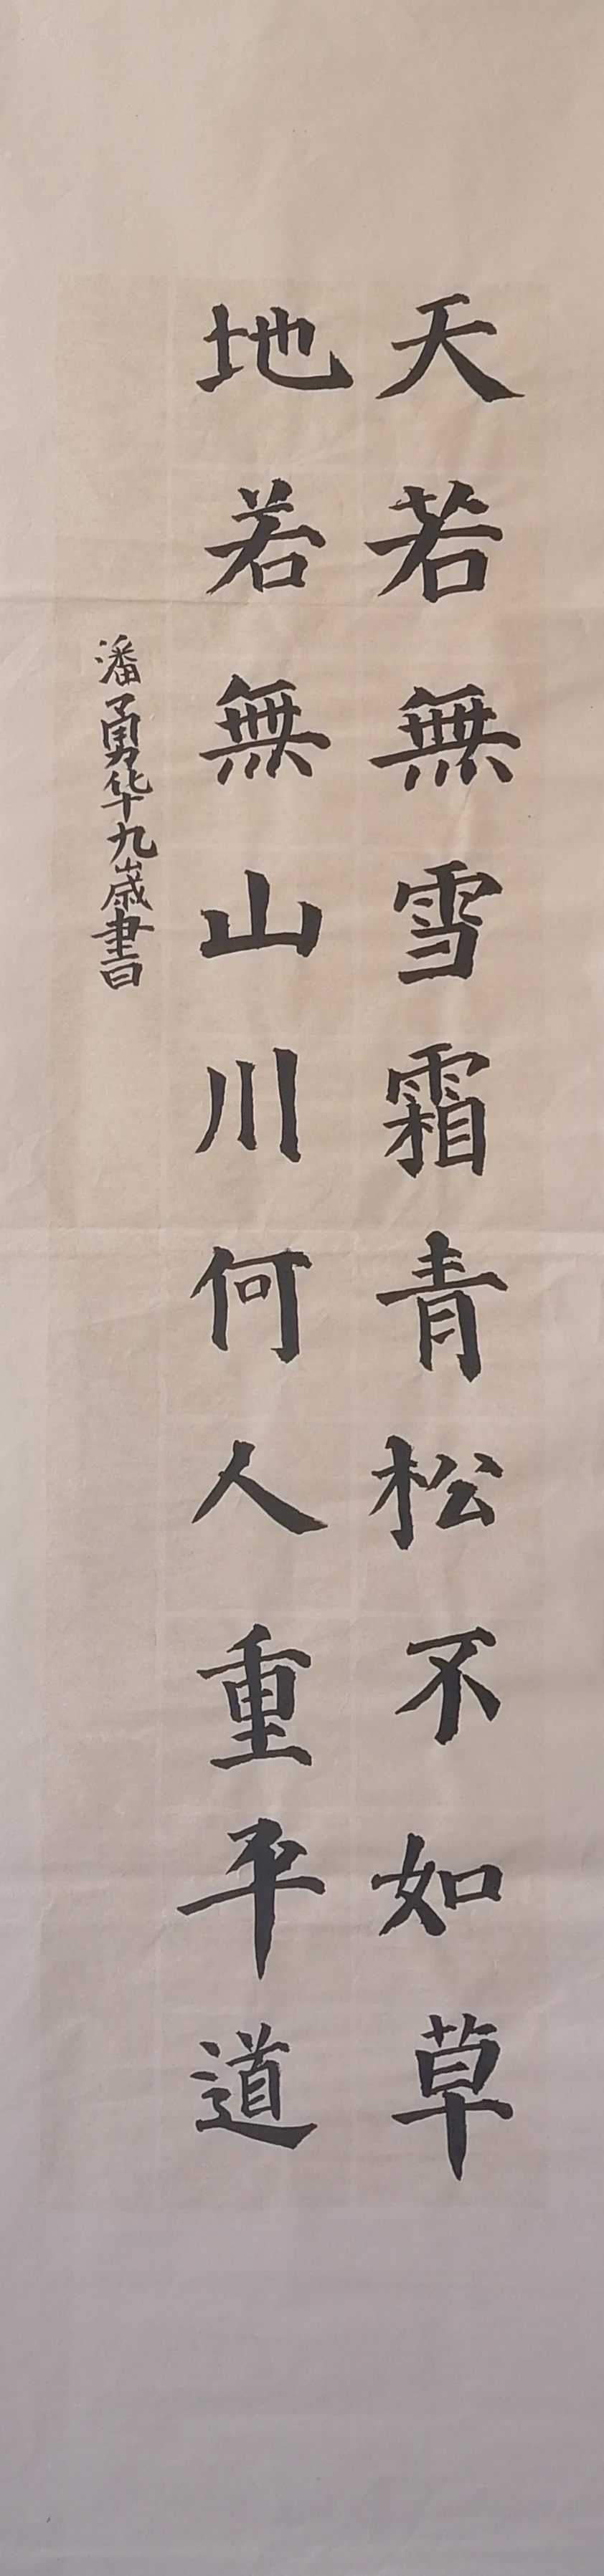 天若無雪霜青松不如草
地若無山川何人重平道
潘勇华九歲書